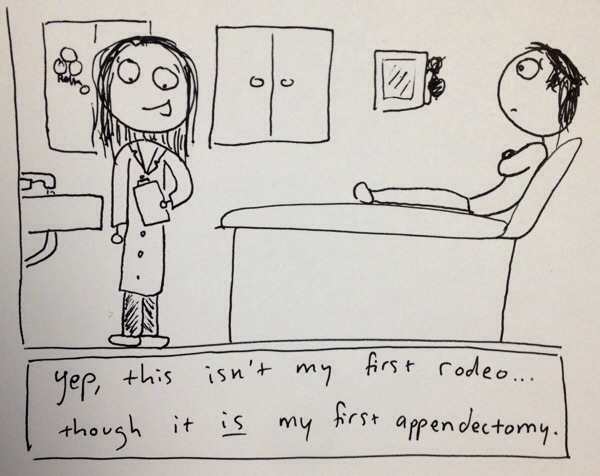 yep, this isn't my first rodeo...
though it is my first appendectomy.